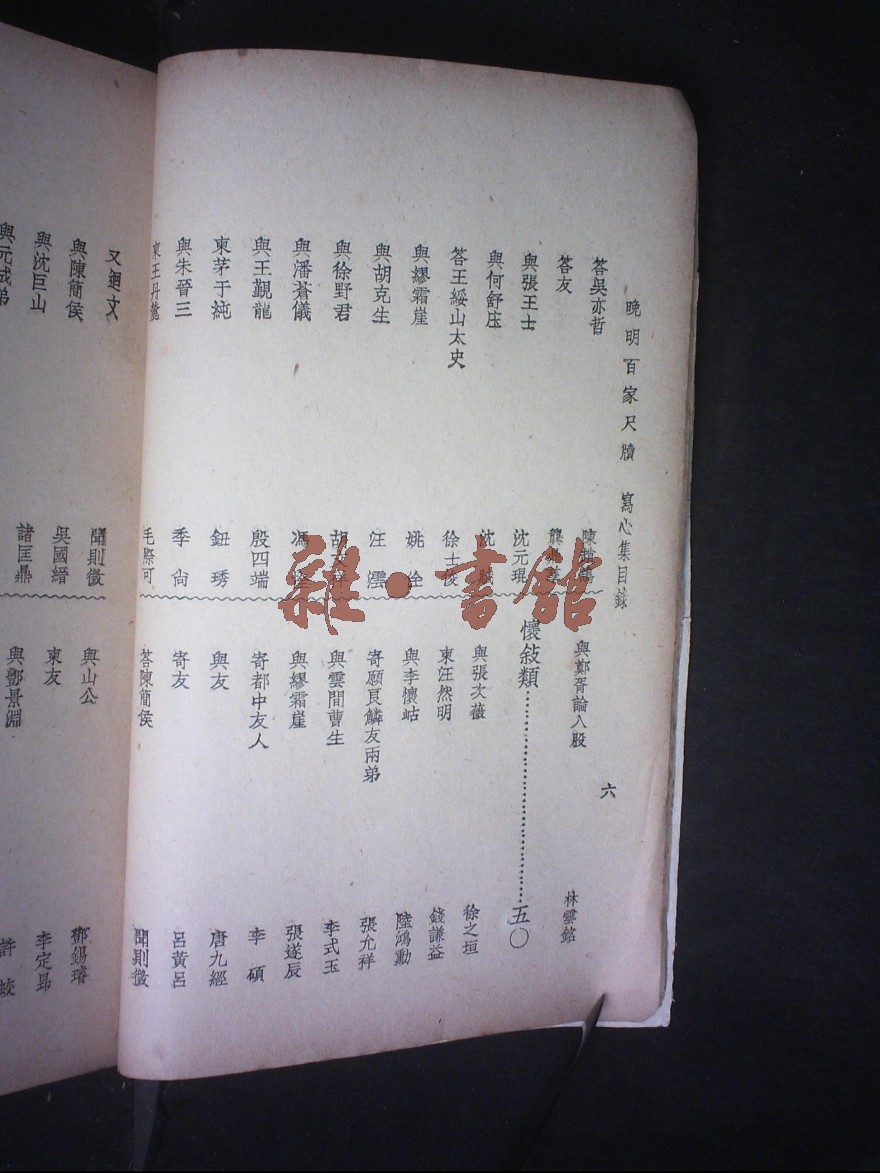 晚明百家尺牘　寫心集目錄
六
答吳亦哲
答友
與張王士　沈元琨
與何舒庄
答王綏山太史　徐士俊
與繆霜崖　姚佺
與胡克生　汪澐
與徐野君
與潘蒼儀
與王覲龍　殷四端
柬茅于純　鈕琇
與朱晉三　季尙
柬王丹麓　毛際可
與鄭胥論入股　林雲銘
懷敍類……五〇
與張次薇　徐之垣
柬汪然明　錢謙益
與李懷岵　陸鴻勳
寄願良鱗友兩弟　張允祥
與雲間曹生　李式玉
與繆霜崖　張遂辰
寄都中友人　李碩
與友　唐九經
寄友　呂黃呂
答陳簡侯　聞則徵
又廻文　聞則徵
與陳簡侯　吳國縉
與沈巨山　諸匡鼎
與元成弟
與山公　鄧錫璿
柬友　李定昻
與酆景淵　許蛟
雜·書館